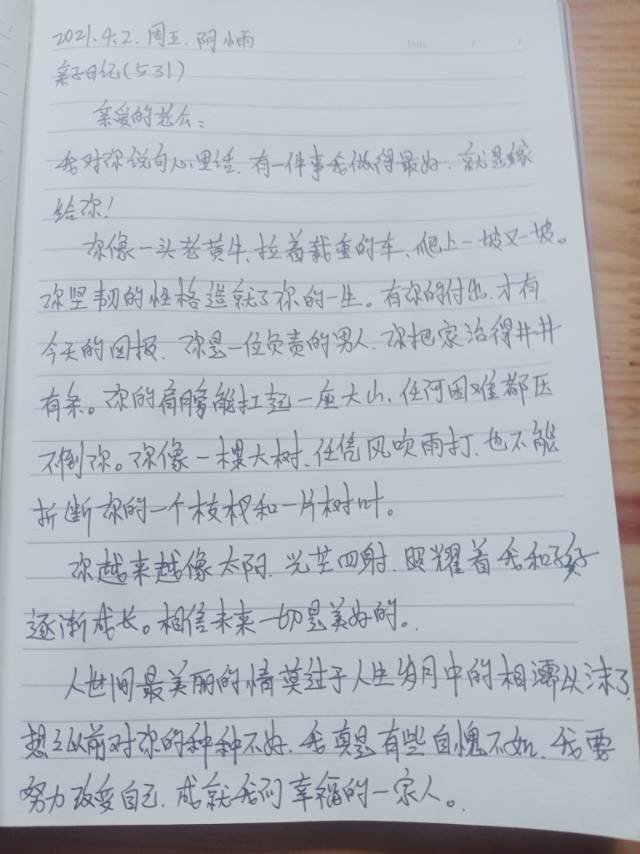 2021.4.2.周五.阴小雨
Date / /
亲子日记(531)
亲爱的老公:
我对你说句心里话.有一件事我做得最好.就是嫁
给你!
你像一头老黄牛、拉着载重的车、爬上一坡又一坡。
你坚韧的性格造就了你的一生。有你的付出.才有
今天的回报.你是一位负责的男人.你把家治得井井
有条。你的肩膀能扛起一座大山.任何困难都压
不倒你。你像一棵大树.任凭风吹雨打.也不能
折断你的一个枝杈和一片树叶。
你越来越像太阳.光芒四射.照耀着我和孩子
逐渐成长。相信未来一切是美好的。
人世间最美丽的情莫过于人生岁月中的相濡以沫了
想之以前对你的种种不好.我真是有些自愧不如.我要
努力改变自己.成就我们幸福的一家人。